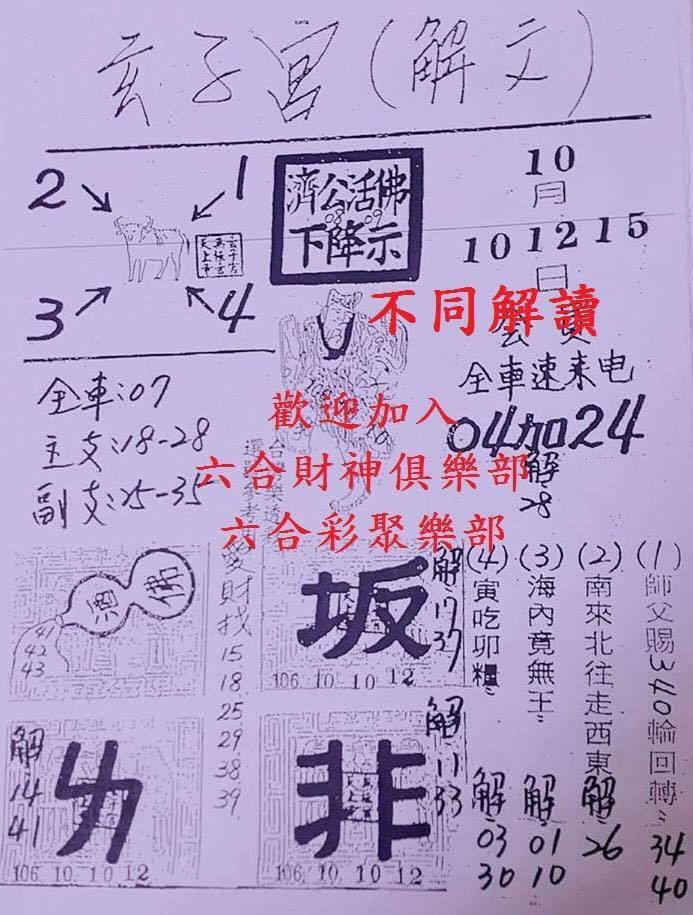 玄子宮（解文）
2
1
3
4
濟公活佛
08 09
下降示
10
月
10 12 15
日
不同解讀
全車速来电
04加24
解
28
全車:07
主支:18-28
副支:25-35
歡迎加入
六合財神俱樂部
六合彩聚樂部
愛財找
15
18
25
29
38
39
41
42
43
坂
解
17
37
106. 10. 10 12
解
14
41
106. 10. 10 12
非
解
11
33
106. 10. 10 12
(1)師父賜340輪回轉:
34
40
(2)南來北往走西東
解
26
(3)海內竟無王:
解
01
10
(4)寅吃卯糧:
解
03
30